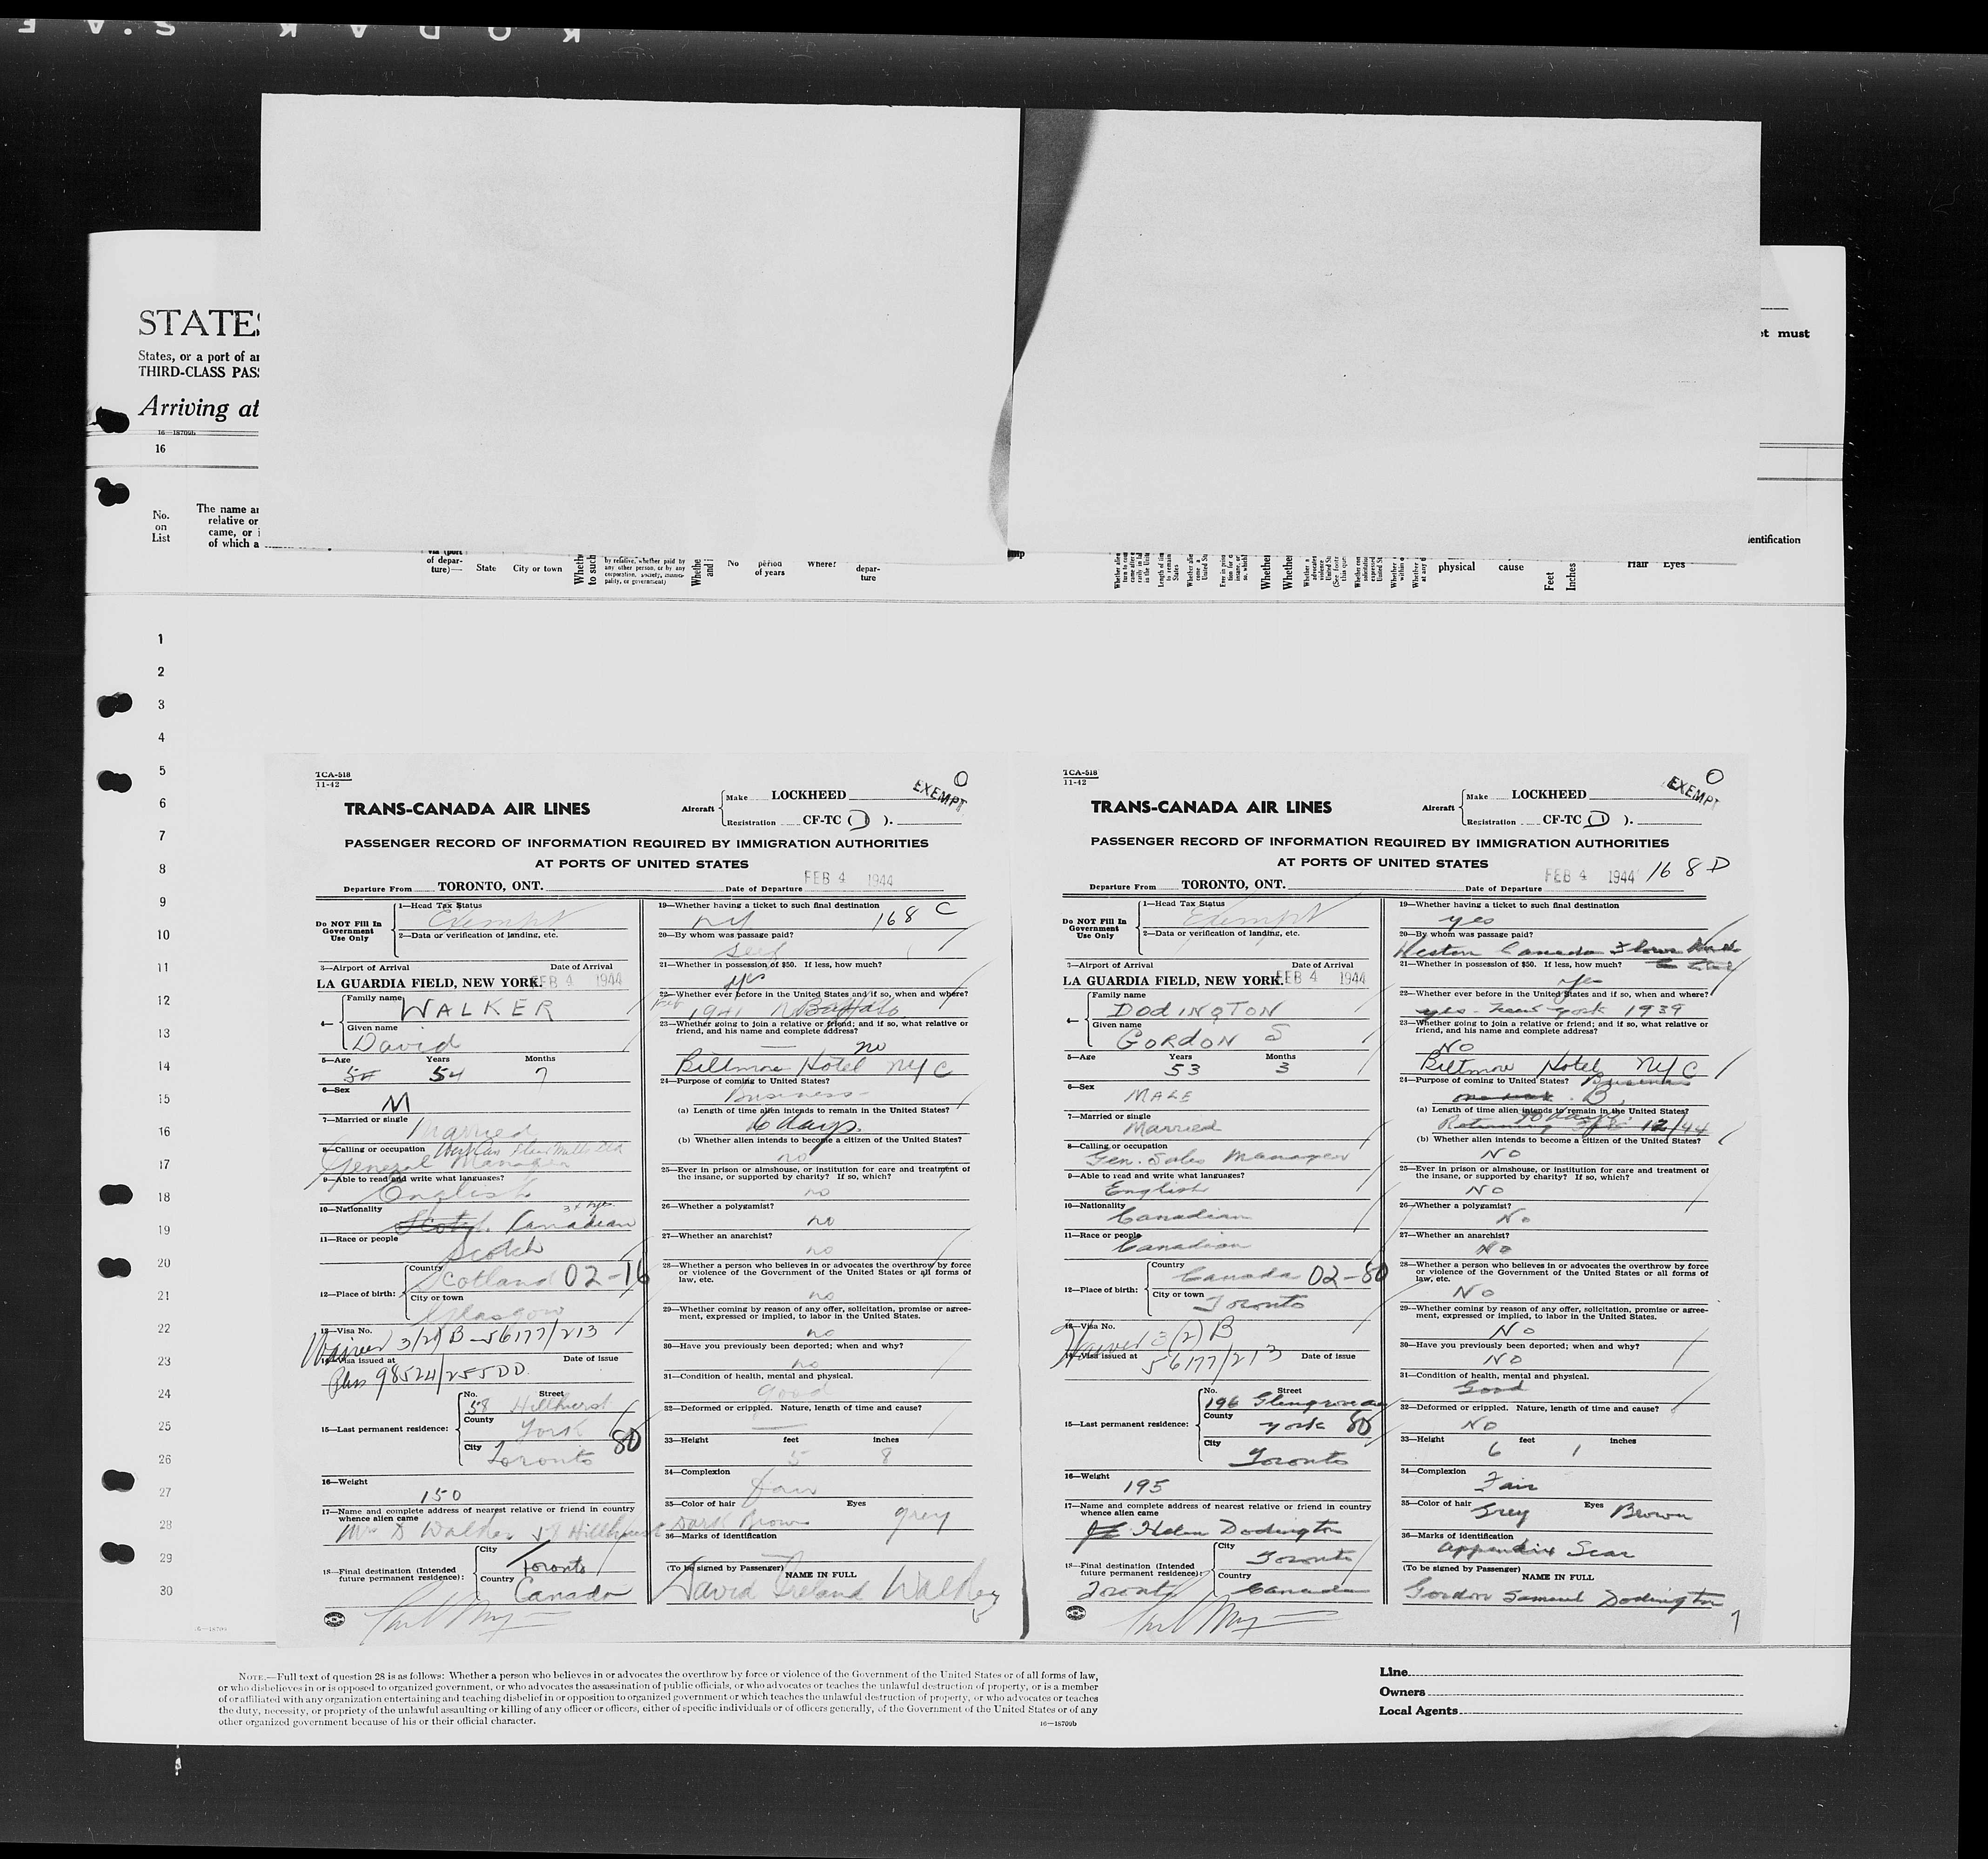 STATES
States, or a port of an
THIRD-CLASS PASS
Arriving at
16—18709b
16
No.
on
List
The name an
relative or
came, or i
of which a
et must
dentification
via (port
of depar-
ture)—
State
City or town
by relative, whether paid by
any other person, or by any
corporation, society, munici-
pality, or government)
No
period
of years
Where?
depar-
ture
physical
cause
Feet
Inches
Hair
Eyes
1
2
3
4
5
6
7
8
9
10
11
12
13
14
15
16
17
18
19
20
21
22
23
24
25
26
27
28
29
30
TCA-518
11-42
TRANS-CANADA AIR LINES
Aircraft
Make LOCKHEED
Registration CF-TC ( D ).
EXEMPT
PASSENGER RECORD OF INFORMATION REQUIRED BY IMMIGRATION AUTHORITIES
AT PORTS OF UNITED STATES
Departure From TORONTO, ONT. Date of Departure FEB 4 1944
Do NOT Fill In
Government
Use Only
1—Head Tax Status
Exempt
2—Data or verification of landing, etc.
3—Airport of Arrival Date of Arrival
LA GUARDIA FIELD, NEW YORK. FEB 4 1944
4—
Family name
WALKER
Given name
David
5—Age Years Months
54 54 7
6—Sex
M
7—Married or single
Married
8—Calling or occupation
General Manager
9—Able to read and write what languages?
English
10—Nationality
Scotch Canadian
11—Race or people
Scotch
12—Place of birth:
Country
Scotland 02-16
City or town
Glasgow
13—Visa No.
Waiver 3(2) B-56177/213
14—Visa issued at Date of issue
Plus 98524/255DD
15—Last permanent residence:
No. Street
58 Hillhurst
County
York
City
Toronto 80
16—Weight
150
17—Name and complete address of nearest relative or friend in country
whence alien came
Mrs D Walker 58 Hillhurst
18—Final destination (Intended
future permanent residence):
City
Toronto
Country
Canada
19—Whether having a ticket to such final destination
168 C
20—By whom was passage paid?
Self
21—Whether in possession of $50. If less, how much?
yes
22—Whether ever before in the United States and if so, when and where?
1941 Buffalo
23—Whether going to join a relative or friend; and if so, what relative or
friend, and his name and complete address?
no
Biltmore Hotel NYC
24—Purpose of coming to United States?
Business
(a) Length of time alien intends to remain in the United States?
6 days
(b) Whether alien intends to become a citizen of the United States?
no
25—Ever in prison or almshouse, or institution for care and treatment of
the insane, or supported by charity? If so, which?
no
26—Whether a polygamist?
no
27—Whether an anarchist?
no
28—Whether a person who believes in or advocates the overthrow by force
or violence of the Government of the United States or all forms of
law, etc.
no
29—Whether coming by reason of any offer, solicitation, promise or agree-
ment, expressed or implied, to labor in the United States.
no
30—Have you previously been deported; when and why?
no
31—Condition of health, mental and physical.
Good
32—Deformed or crippled. Nature, length of time and cause?
33—Height feet inches
5 8
34—Complexion
fair
35—Color of hair Eyes
Dark Brown grey
36—Marks of identification
(To be signed by Passenger)
NAME IN FULL
David Ireland Walker
TCA-518
11-42
TRANS-CANADA AIR LINES
Aircraft
Make LOCKHEED
Registration CF-TC ( D ).
EXEMPT
PASSENGER RECORD OF INFORMATION REQUIRED BY IMMIGRATION AUTHORITIES
AT PORTS OF UNITED STATES
Departure From TORONTO, ONT. Date of Departure FEB 4 1944 168 D
Do NOT Fill In
Government
Use Only
1—Head Tax Status
Exempt
2—Data or verification of landing, etc.
3—Airport of Arrival Date of Arrival
LA GUARDIA FIELD, NEW YORK. FEB 4 1944
4—
Family name
DODINGTON
Given name
GORDON S
5—Age Years Months
53 3
6—Sex
MALE
7—Married or single
Married
8—Calling or occupation
Gen. Sales Manager
9—Able to read and write what languages?
English
10—Nationality
Canadian
11—Race or people
Canadian
12—Place of birth:
Country
Canada 02-80
City or town
Toronto
13—Visa No.
Waiver 3(2) B
14—Visa issued at Date of issue
56177/213
15—Last permanent residence:
No. Street
196 Glengrove av
County
York 80
City
Toronto
16—Weight
195
17—Name and complete address of nearest relative or friend in country
whence alien came
Helen Dodington
18—Final destination (Intended
future permanent residence):
Toronto
City
Toronto
Country
Canada
19—Whether having a ticket to such final destination
yes
20—By whom was passage paid?
Western Canada Flour Mills
21—Whether in possession of $50. If less, how much?
Yes
22—Whether ever before in the United States and if so, when and where?
yes - New York 1939
23—Whether going to join a relative or friend; and if so, what relative or
friend, and his name and complete address?
NO
Biltmore Hotel NYC
24—Purpose of coming to United States? Business
B.
(a) Length of time alien intends to remain in the United States?
10 days
Returning Feb 12/44
(b) Whether alien intends to become a citizen of the United States?
NO
25—Ever in prison or almshouse, or institution for care and treatment of
the insane, or supported by charity? If so, which?
NO
26—Whether a polygamist?
No
27—Whether an anarchist?
No
28—Whether a person who believes in or advocates the overthrow by force
or violence of the Government of the United States or all forms of
law, etc.
No
29—Whether coming by reason of any offer, solicitation, promise or agree-
ment, expressed or implied, to labor in the United States.
No
30—Have you previously been deported; when and why?
NO
31—Condition of health, mental and physical.
Good
32—Deformed or crippled. Nature, length of time and cause?
NO
33—Height feet inches
6 1
34—Complexion
Fair
35—Color of hair Eyes
Grey Brown
36—Marks of identification
Appendix Scar
(To be signed by Passenger)
NAME IN FULL
Gordon Samuel Dodington
NOTE.—Full text of question 28 is as follows: Whether a person who believes in or advocates the overthrow by force or violence of the Government of the United States or of all forms of law,
or who disbelieves in or is opposed to organized government, or who advocates the assassination of public officials, or who advocates or teaches the unlawful destruction of property, or is a member
of or affiliated with any organization entertaining and teaching disbelief in or opposition to organized government or which teaches the unlawful destruction of property, or who advocates or teaches
the duty, necessity, or propriety of the unlawful assaulting or killing of any officer or officers, either of specific individuals or of officers generally, of the Government of the United States or of any
other organized government because of his or their official character.
16—18709b
Line
Owners
Local Agents